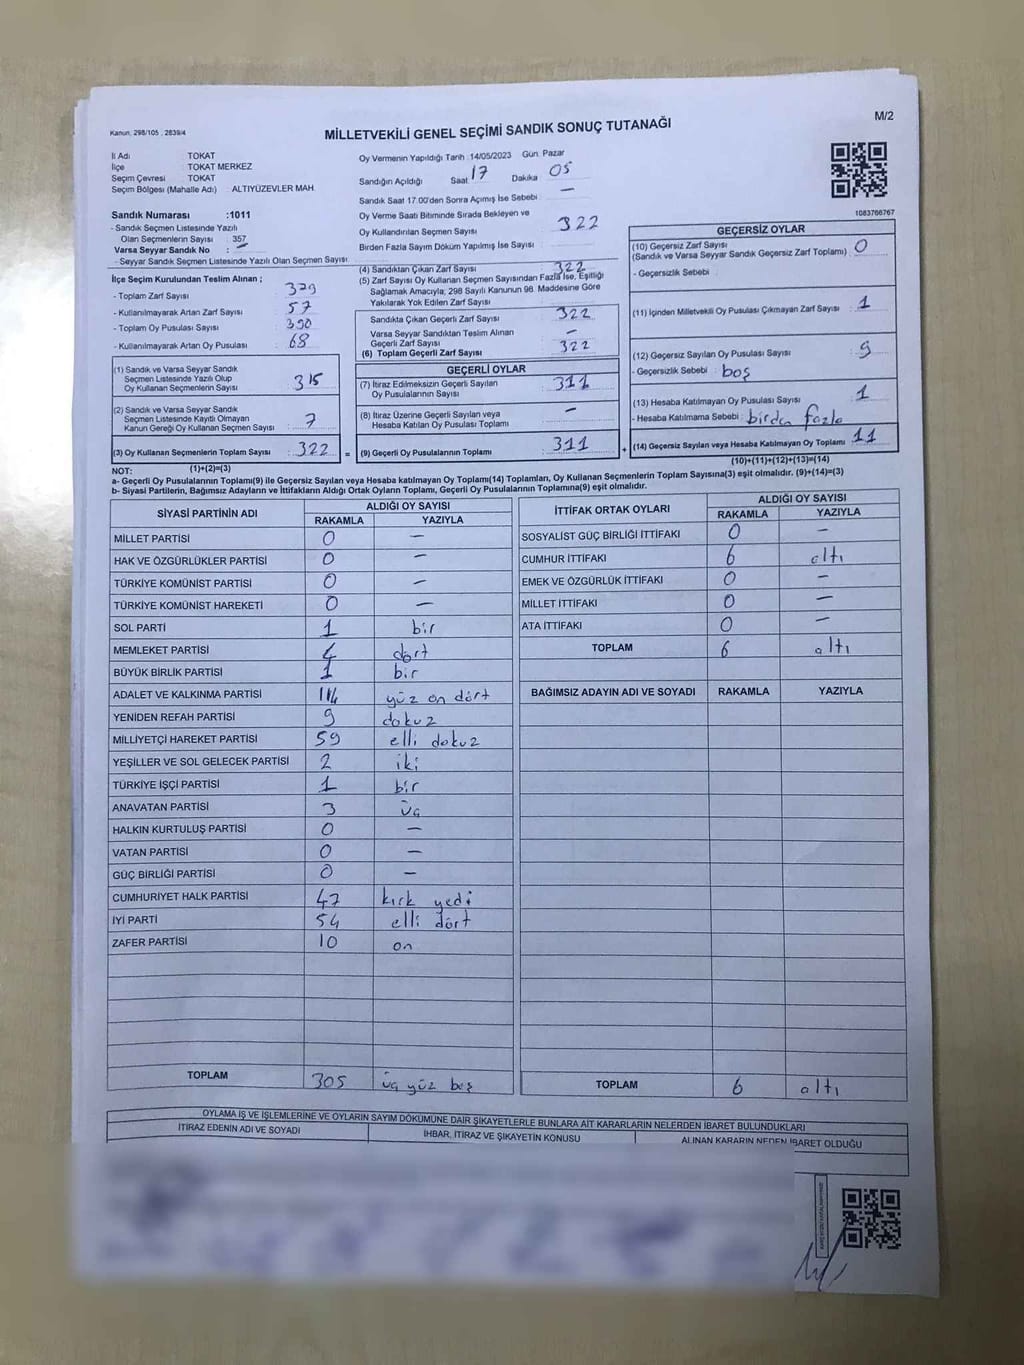 M/2
Kanun, 298/105 , 2839/4
MİLLETVEKİLİ GENEL SEÇİMİ SANDIK SONUÇ TUTANAĞI
İl Adı TOKAT
İlçe TOKAT MERKEZ
Seçim Çevresi TOKAT
Seçim Bölgesi (Mahalle Adı) : ALTIYÜZEVLER MAH.
Sandık Numarası :1011
- Sandık Seçmen Listesinde Yazılı
Olan Seçmenlerin Sayısı : 357
Varsa Seyyar Sandık No : -
- Seyyar Sandık Seçmen Listesinde Yazılı Olan Seçmen Sayısı
Oy Vermenin Yapıldığı Tarih :14/05/2023 Gün: Pazar
Sandığın Açıldığı Saat 17 Dakika 05
Sandık Saat 17.00'den Sonra Açımış İse Sebebi : -
Oy Verme Saati Bitiminde Sırada Bekleyen ve
Oy Kullandırılan Seçmen Sayısı 322
Birden Fazla Sayım Döküm Yapılmış İse Sayısı
1083766767
İlçe Seçim Kurulundan Teslim Alınan ;
- Toplam Zarf Sayısı
- Kullanılmayarak Artan Zarf Sayısı : 57
- Toplam Oy Pusulası Sayısı : 390
- Kullanılmayarak Artan Oy Pusulası : 68
(1) Sandık ve Varsa Seyyar Sandık
Seçmen Listesinde Yazılı Olup
Oy Kullanan Seçmenlerin Sayısı : 315
(2) Sandık ve Varsa Seyyar Sandık
Seçmen Listesinde Kayıtlı Olmayan
Kanun Gereği Oy Kullanan Seçmen Sayısı : 7
(3) Oy Kullanan Seçmenlerin Toplam Sayısı : 322 =
(1)+(2)=(3)
(4) Sandıktan Çıkan Zarf Sayısı : 322
(5) Zarf Sayısı Oy Kullanan Seçmen Sayısından Fazla İse, Eşitliği
Sağlamak Amacıyla; 298 Sayılı Kanunun 98. Maddesine Göre
Yakılarak Yok Edilen Zarf Sayısı
Sandıkta Çıkan Geçerli Zarf Sayısı : 322
Varsa Seyyar Sandıktan Teslim Alınan
Geçerli Zarf Sayısı : -
(6) Toplam Geçerli Zarf Sayısı : 322
GEÇERLİ OYLAR
(7) İtiraz Edilmeksizin Geçerli Sayılan
Oy Pusulalarının Sayısı : 311
(8) İtiraz Üzerine Geçerli Sayılan veya
Hesaba Katılan Oy Pusulası Toplamı : -
(9) Geçerli Oy Pusulalarının Toplamı : 311 +
GEÇERSİZ OYLAR
(10) Geçersiz Zarf Sayısı
(Sandık ve Varsa Seyyar Sandık Geçersiz Zarf Toplamı) : 0
- Geçersizlik Sebebi :
(11) İçinden Milletvekili Oy Pusulası Çıkmayan Zarf Sayısı : 1
(12) Geçersiz Sayılan Oy Pusulası Sayısı : 9
- Geçersizlik Sebebi : boş
(13) Hesaba Katılmayan Oy Pusulası Sayısı : 1
- Hesaba Katılmama Sebebi : birden fazla
(14) Geçersiz Sayılan veya Hesaba Katılmayan Oy Toplamı : 11
(10)+(11)+(12)+(13)=(14)
NOT:
a- Geçerli Oy Pusulalarının Toplamı(9) ile Geçersiz Sayılan veya Hesaba katılmayan Oy Toplamı(14) Toplamları, Oy Kullanan Seçmenlerin Toplam Sayısına(3) eşit olmalıdır. (9)+(14)=(3)
b- Siyasi Partilerin, Bağımsız Adayların ve İttifakların Aldığı Ortak Oyların Toplamı, Geçerli Oy Pusulalarının Toplamına(9) eşit olmalıdır.
SİYASİ PARTİNİN ADI ALDIĞI OY SAYISI
RAKAMLA YAZIYLA
MİLLET PARTİSİ 0 -
HAK VE ÖZGÜRLÜKLER PARTİSİ 0 -
TÜRKİYE KOMÜNİST PARTİSİ 0 -
TÜRKİYE KOMÜNİST HAREKETİ 0 -
SOL PARTİ 1 bir
MEMLEKET PARTİSİ 4 dört
BÜYÜK BİRLİK PARTİSİ 1 bir
ADALET VE KALKINMA PARTİSİ 114 yüz on dört
YENİDEN REFAH PARTİSİ 9 dokuz
MİLLİYETÇİ HAREKET PARTİSİ 59 elli dokuz
YEŞİLLER VE SOL GELECEK PARTİSİ 2 iki
TÜRKİYE İŞÇİ PARTİSİ 1 bir
ANAVATAN PARTİSİ 3 üç
HALKIN KURTULUŞ PARTİSİ 0 -
VATAN PARTİSİ 0 -
GÜÇ BİRLİĞİ PARTİSİ 0 -
CUMHURİYET HALK PARTİSİ 47 kırk yedi
İYİ PARTİ 54 elli dört
ZAFER PARTİSİ 10 on
TOPLAM 305 üç yüz beş
İTTİFAK ORTAK OYLARI ALDIĞI OY SAYISI
RAKAMLA YAZIYLA
SOSYALİST GÜÇ BİRLİĞİ İTTİFAKI 0 -
CUMHUR İTTİFAKI 6 altı
EMEK VE ÖZGÜRLÜK İTTİFAKI 0 -
MİLLET İTTİFAKI 0 -
ATA İTTİFAKI 0 -
TOPLAM 6 altı
BAĞIMSIZ ADAYIN ADI VE SOYADI RAKAMLA YAZIYLA
TOPLAM 6 altı
OYLAMA İŞ VE İŞLEMLERİNE VE OYLARIN SAYIM DÖKÜMÜNE DAİR ŞİKAYETLERLE BUNLARA AİT KARARLARIN NELERDEN İBARET BULUNDUKLARI
İTİRAZ EDENİN ADI VE SOYADI İHBAR, İTİRAZ VE ŞİKAYETİN KONUSU ALINAN KARARIN NEDEN İBARET OLDUĞU